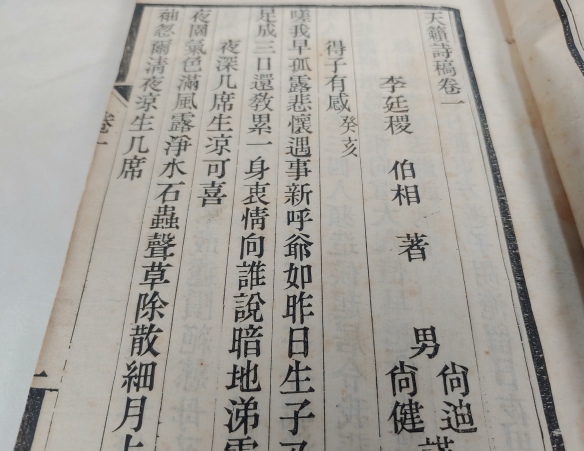 天籟詩稿卷一
李廷稷 伯相 著 男 尙迪
尙健
得子有感 癸亥
嗟我早孤露悲懷遇事新呼爺如昨日生子
是成三日還教累一身衷情向誰說暗地涕
夜深几席生凉可喜
夜園氣色滿風露淨水石蟲聲草除散細月上
袖忽爾淸夜凉生几席
卷一